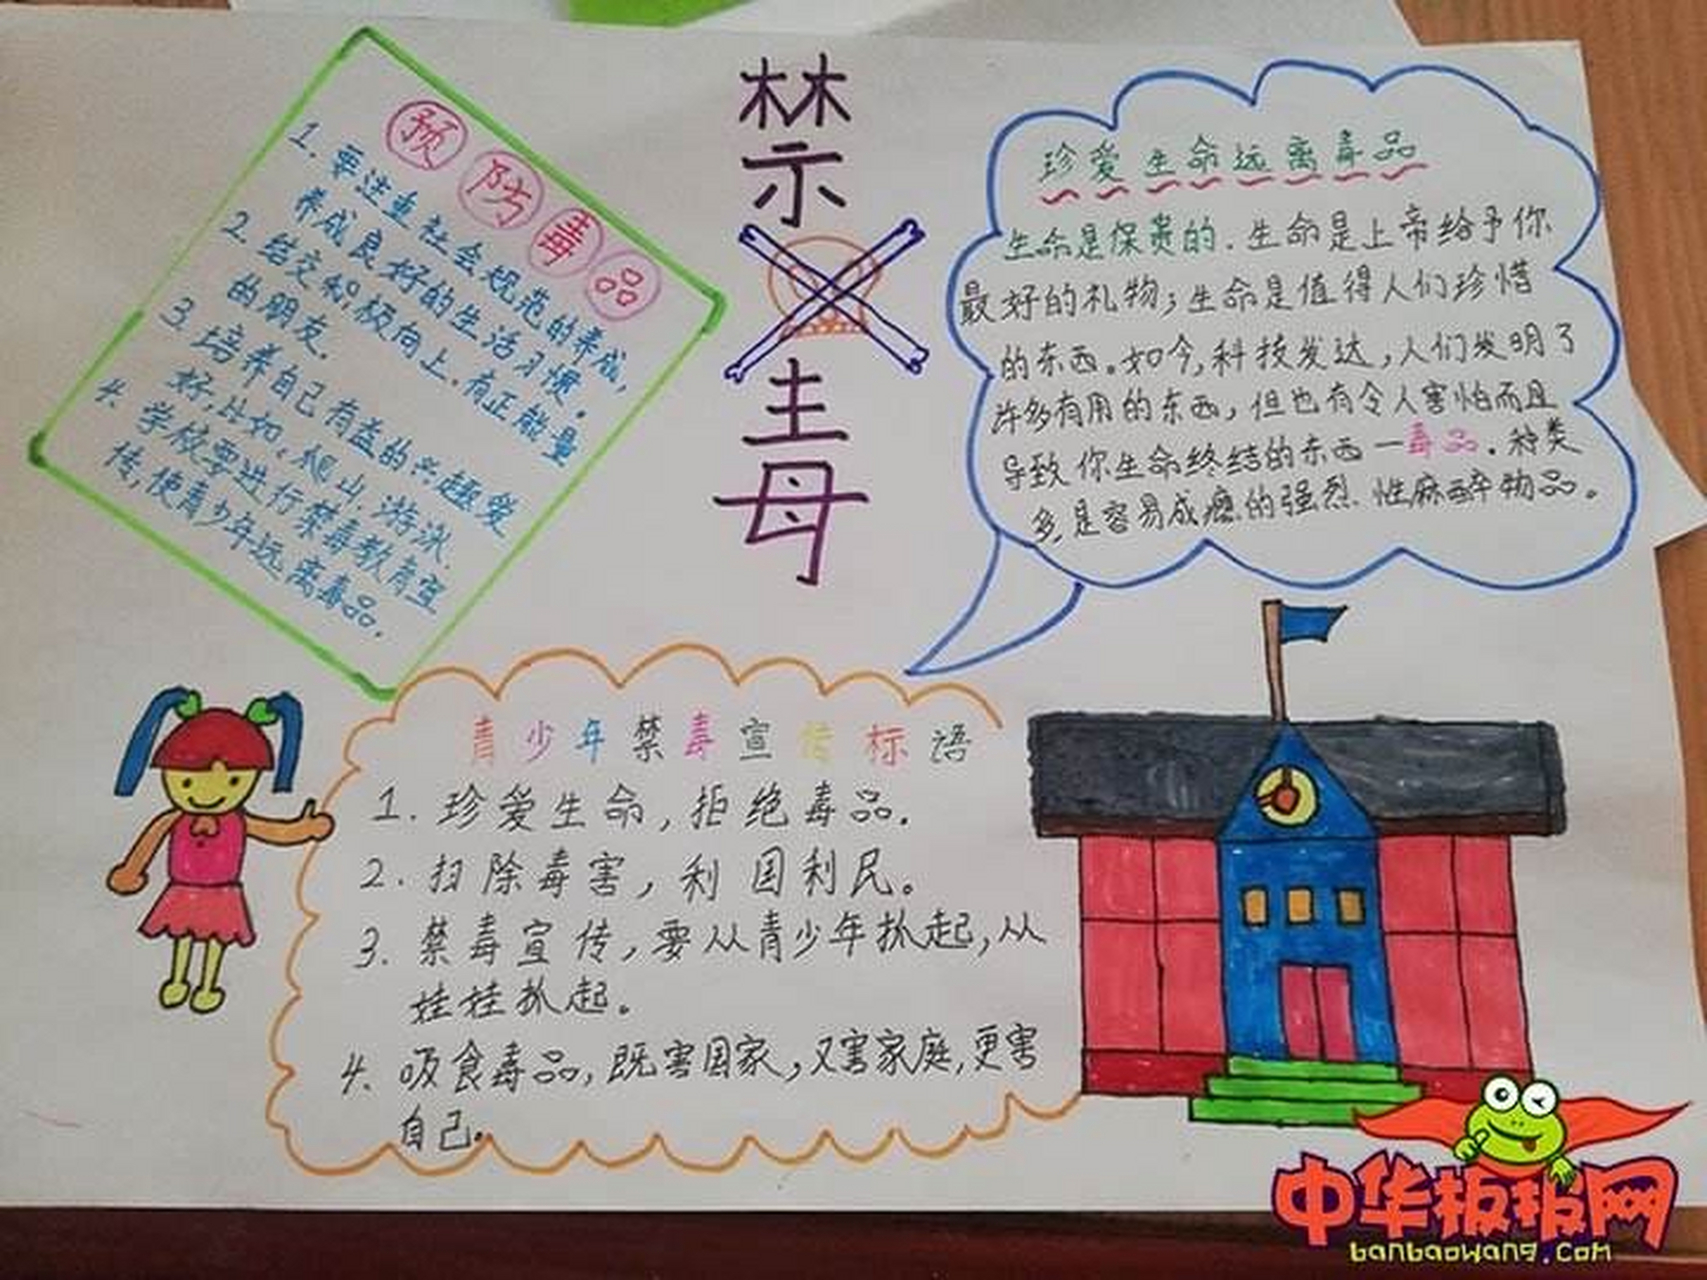 禁
毒
预防毒品
1. 要注重社会规范的养成,
养成良好的生活习惯。
2. 结交积极向上.有正能量
的朋友.
3. 培养自己有益的兴趣爱
好,比如,爬山,游泳.
4. 学校要进行禁毒教育宣
传,使青少年远离毒品.
珍爱生命远离毒品
生命是保贵的.生命是上帝给予你
最好的礼物;生命是值得人们珍惜
的东西。如今,科技发达,人们发明了
许多有用的东西,但也有令人害怕而且
导致你生命终结的东西一毒品.种类
多,是容易成瘾的强烈.性麻醉物品。
青少年禁毒宣传标语
1. 珍爱生命,拒绝毒品.
2. 扫除毒害,利国利民。
3. 禁毒宣传,要从青少年抓起,从
娃娃抓起。
4. 吸食毒品,既害国家,又害家庭,更害
自己.
中华板报网
banbaowang.com